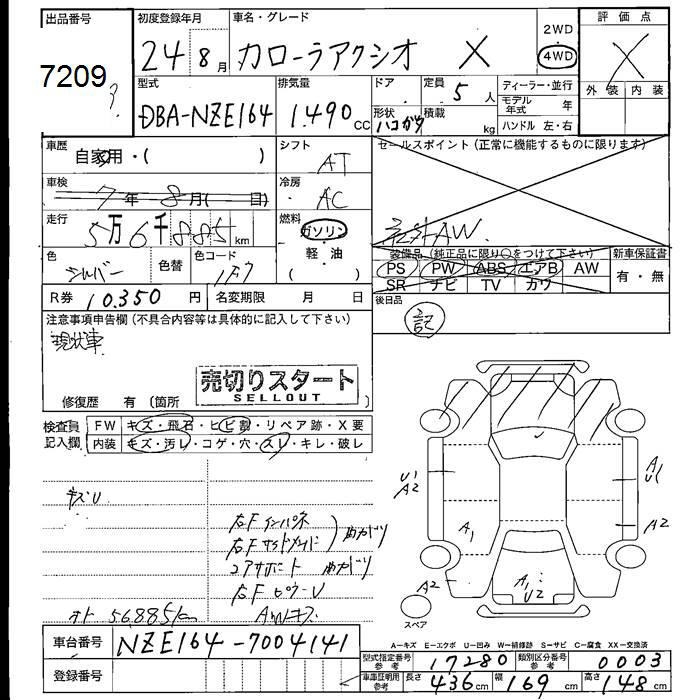 出品番号
7209
初度登録年月
24 8月
車名・グレード
カローラアクシオ X
2WD
4WD
評価点
X
外装 内装
型式
DBA-NZE164
排気量
1.490 CC
ドア
定員
5人
形状
ハコガタ
積載
kg
ディーラー・並行
モデル年式 年
ハンドル 左・右
車歴
自家用・( )
シフト
AT
セールスポイント (正常に機能するものに限ります)
社外AW.
車検
7年8月( 日)
冷房
AC
走行
5万6千885km
燃料
ガソリン
軽・油
( )
色
シルバー
色替
色コード
1F7
装備品 (純正品に限り○をつけて下さい)
PS PW ABS エアB AW
SR ナビ TV カワ
新車保証書
有・無
R券 10.350円
名変期限 月 日
後日品
記
注意事項申告欄 (不具合内容等は具体的に記入して下さい)
現状車
売切りスタート
SELLOUT
修復歴 有 (箇所
検査員記入欄
FW キズ・飛石・ヒビ割・リペア跡・X要
内装 キズ・汚レ・コゲ・穴・スレ・キレ・破レ
キズU
右Fインパネ
右Fサイドメンバ
めガリ
コアサポート めガリ
右Fピラー U
オト 56,885km
AWキズ
U1
A2
A1
U1
A2
A1
A2
A1
U2
スペア
A-キズ E-エクボ U-凹み W-補修跡 S-サビ C-腐食 XX-交換済
車台番号 NZE164-7004141
登録番号
型式指定番号 参考 17280
類別区分番号 参考 0003
車庫証明用 参考 長さ 436cm 幅 169cm 高さ 148cm